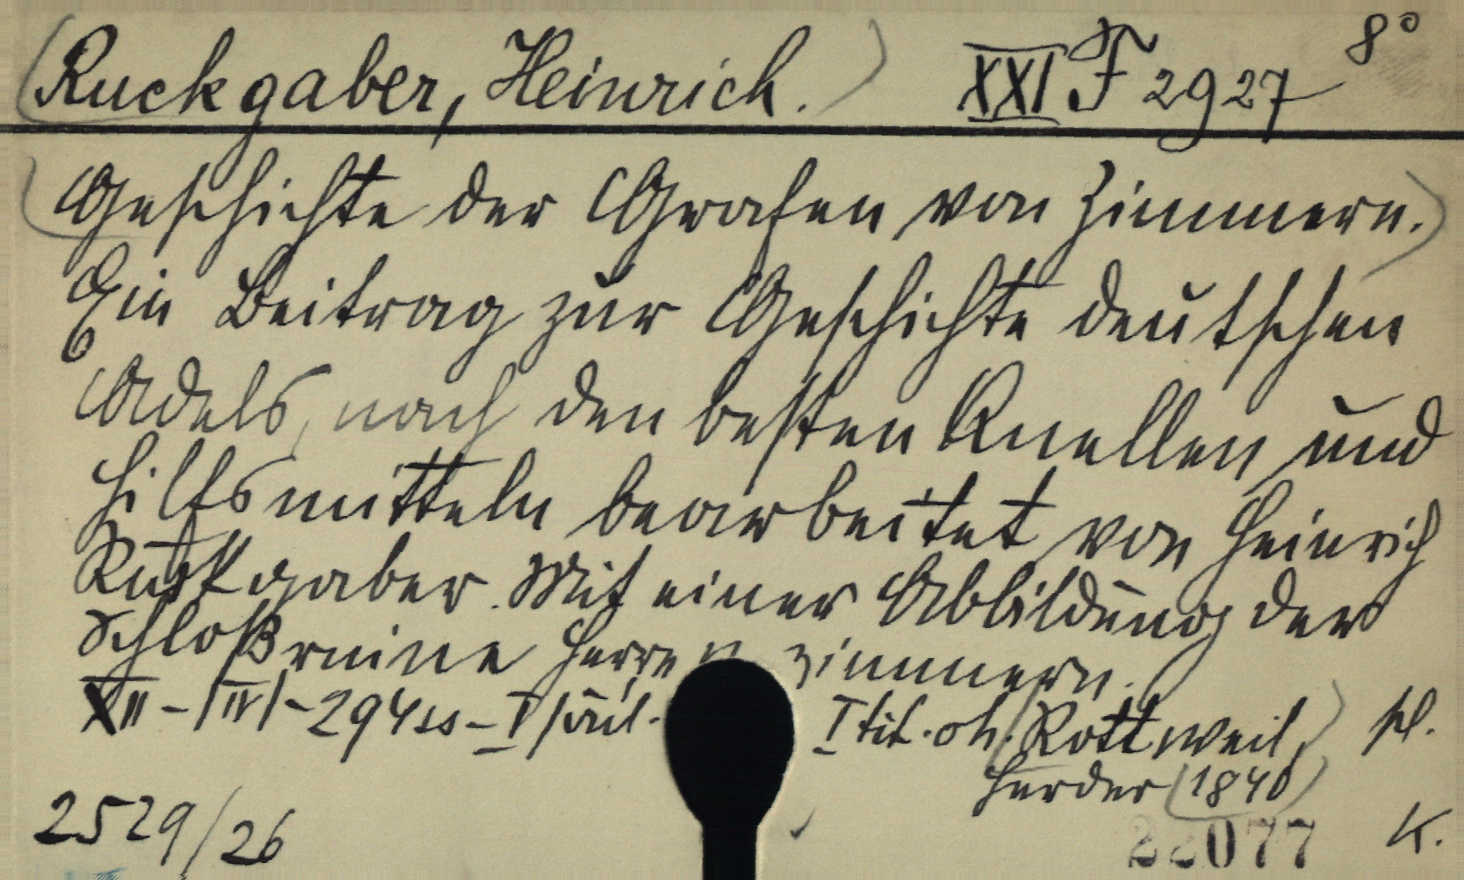 (Ruckgaber, Heinrich.) XXI F 2927 8°
(Geschichte der Grafen von Zimmern.)
Ein Beitrag zur Geschichte deutschen
Adels, nach den besten Quellen und
Hilfsmitteln bearbeitet von Heinrich
Ruckgaber. Mit einer Abbildung der
Schloßruine Herrenzimmern.
XII-|IV|-294 ss-I I tit. Rottweil,)
Herder (1840)
2529/26 22077 K.